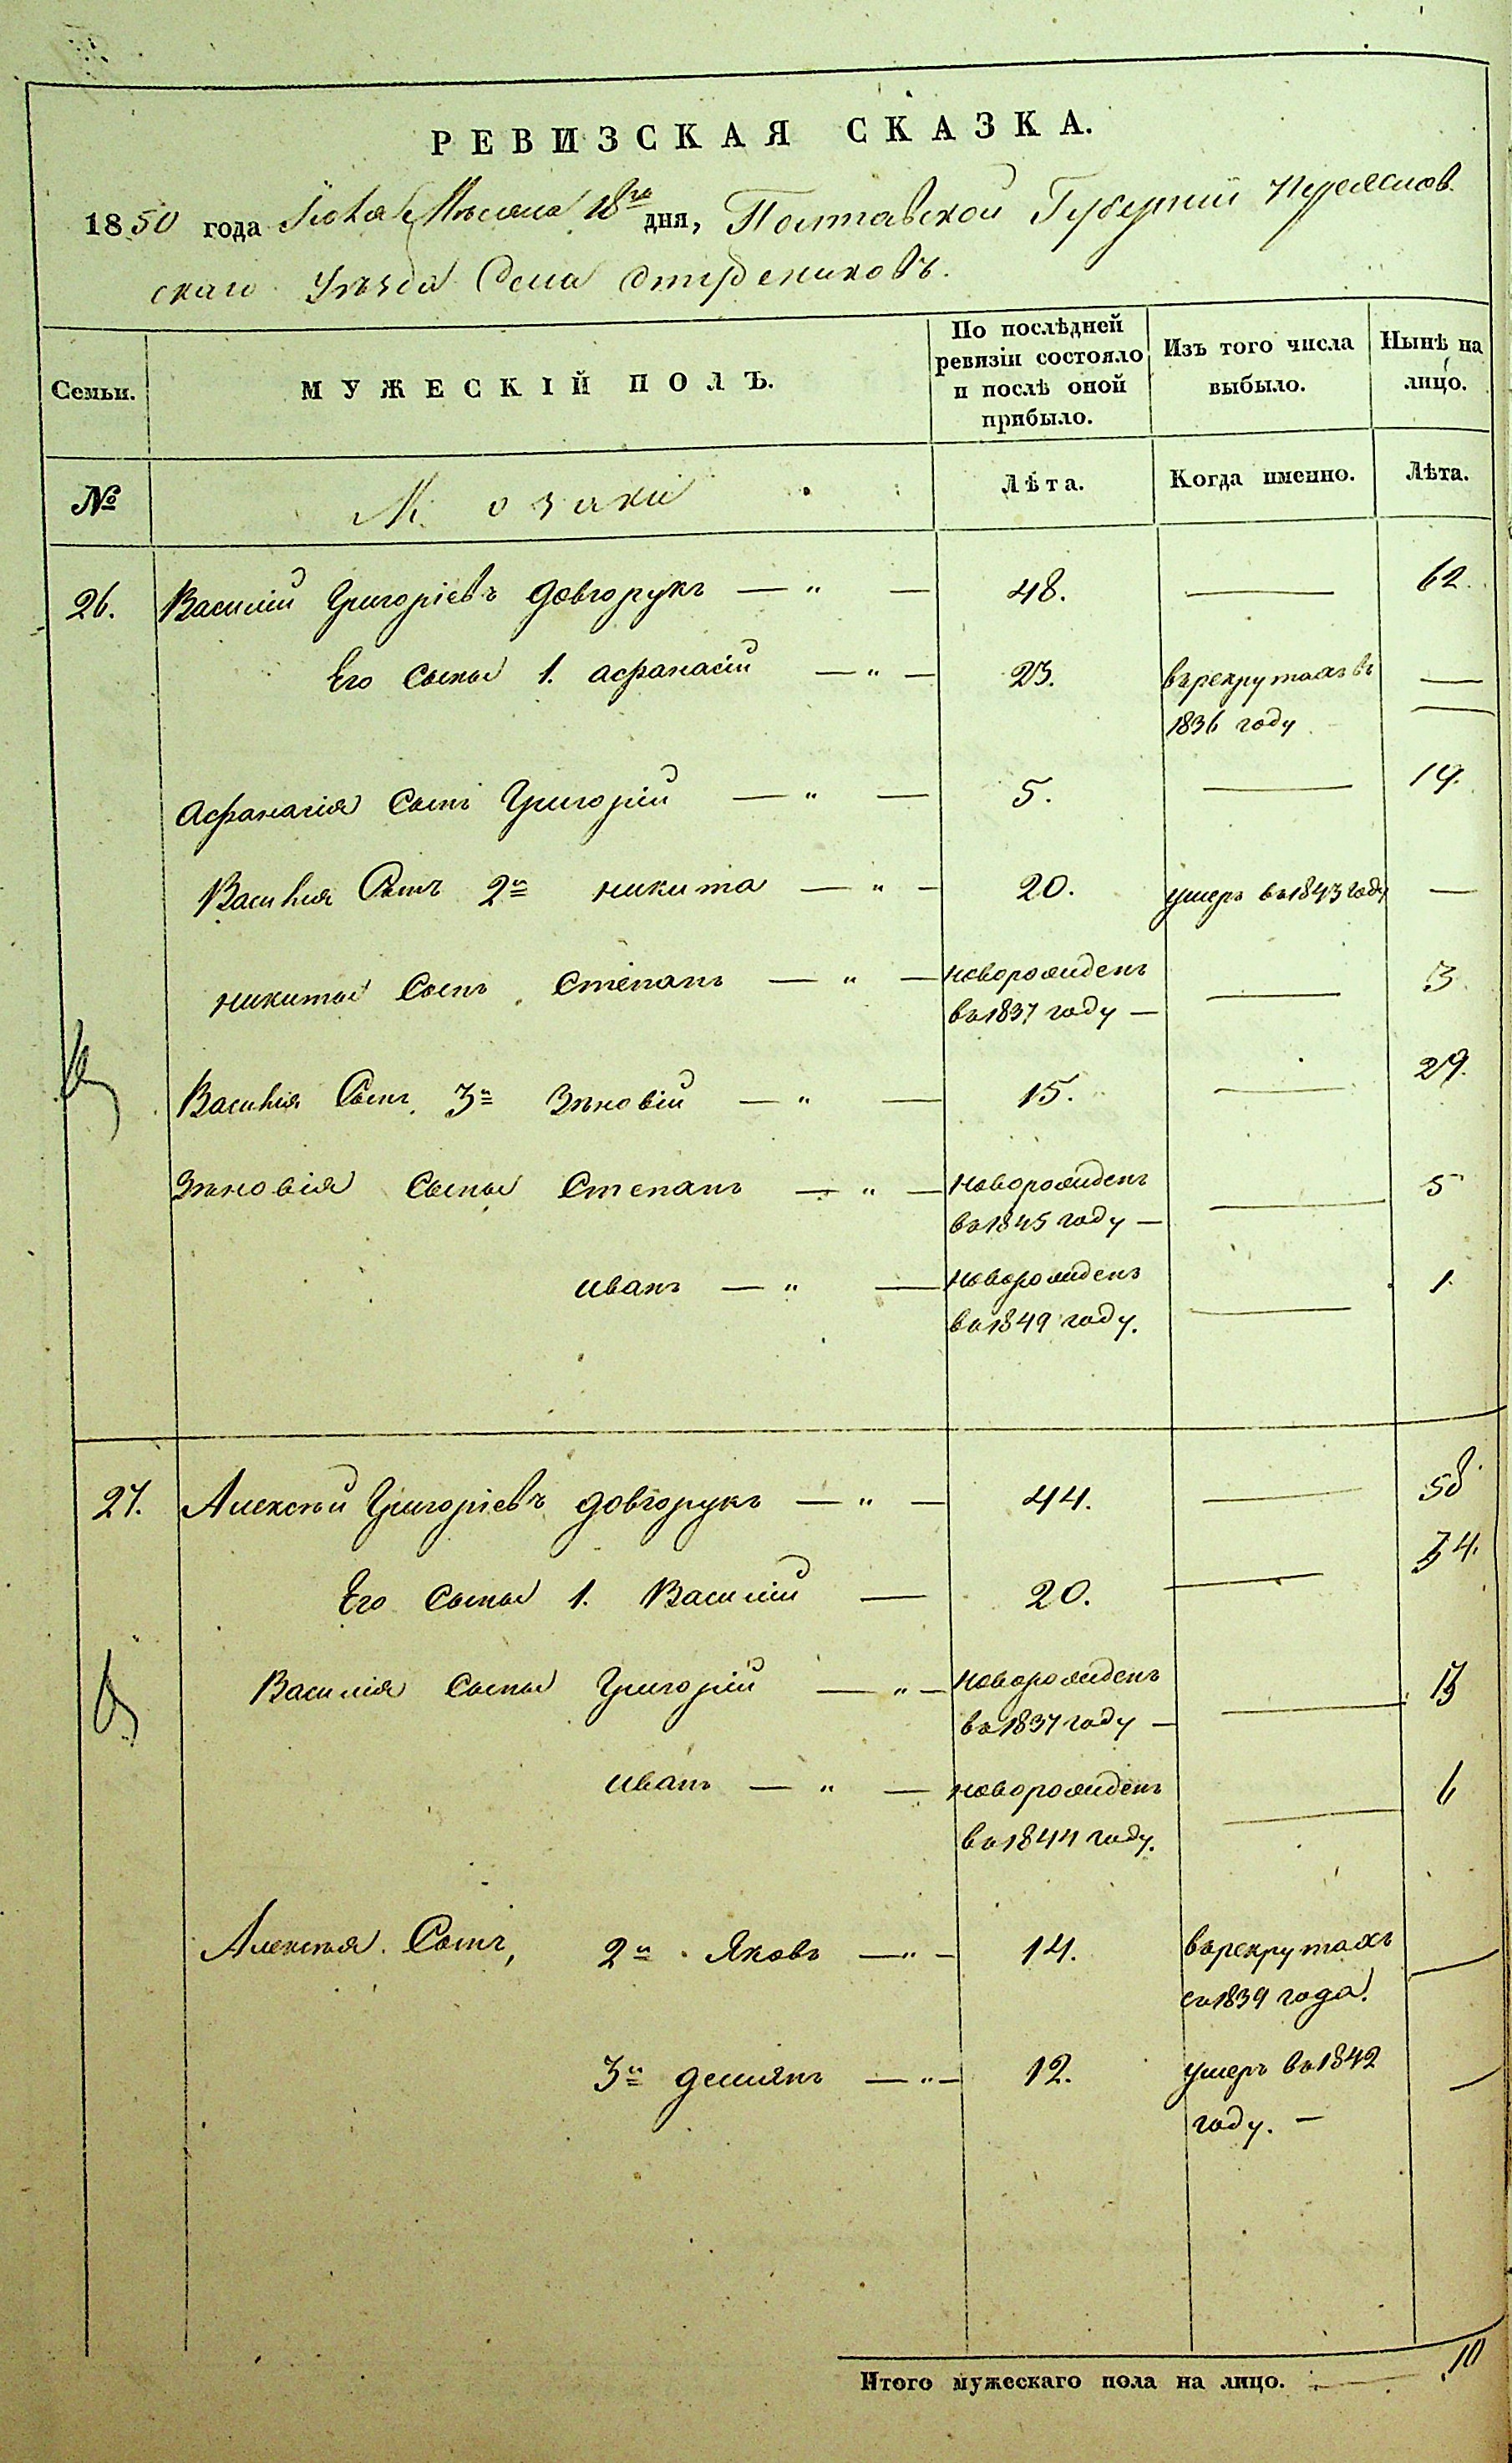 РЕВИЗСКАЯ СКАЗКА.
1850 года Мѣсяца 18го дня, Полтавской Губерніи Переяслов
скаго Уѣзда Села
Семьи. МУЖЕСКІЙ ПОЛЪ. По послѣдней ревизіи состояло и послѣ оной прибыло. Изъ того числа выбыло. Нынѣ на лицо.
№ Козаки Лѣта. Когда именно. Лѣта.
26. Василій Григоріевъ Довгорукъ — " — 48. — 62.
Его Сыны 1. Афанасій — " — 23. въ рекрутахъ въ —
1836 году
Афанасія Сынъ Григорій — " — 5. — 19.
Василія Сынъ 2й Никита — " — 20. умеръ въ 1843 году —
Никиты Сынъ Степанъ — " — новорожденъ — 3
въ 1837 году —
Василія Сынъ 3й Зѣновій — " — 15. — 29.
Зѣновія Сыны Степанъ — " — новорожденъ — 5
въ 1845 году —
Иванъ — " — новорожденъ — 1.
въ 1849 году.
27. Алексѣй Григоріевъ Довгорукъ — " — 44. — 58
Его Сыны 1. Василій — 20. — 34.
Василія Сыны Григорій — " — новорожденъ — 13
въ 1837 году —
Иванъ — " — новорожденъ — 6
въ 1844 году.
Алексѣя Сынъ, 2й Яковъ — " — 14. въ рекрутахъ —
съ 1839 года.
3й Демянъ — " — 12. умеръ въ 1842 —
году. —
Итого мужескаго пола на лицо. — 10